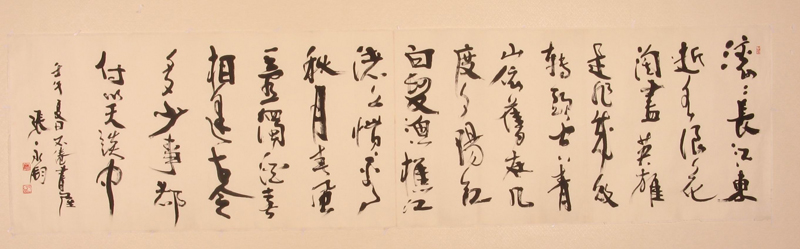 滚滚長江東
逝水浪花
淘盡英雄
是非成敗
轉頭空青
山依舊在几
度夕陽紅
白髮漁樵江
渚上惯看
秋月春風
一壺濁酒喜
相逢古今
多少事都
付笑谈中
壬午夏日書屋
張永